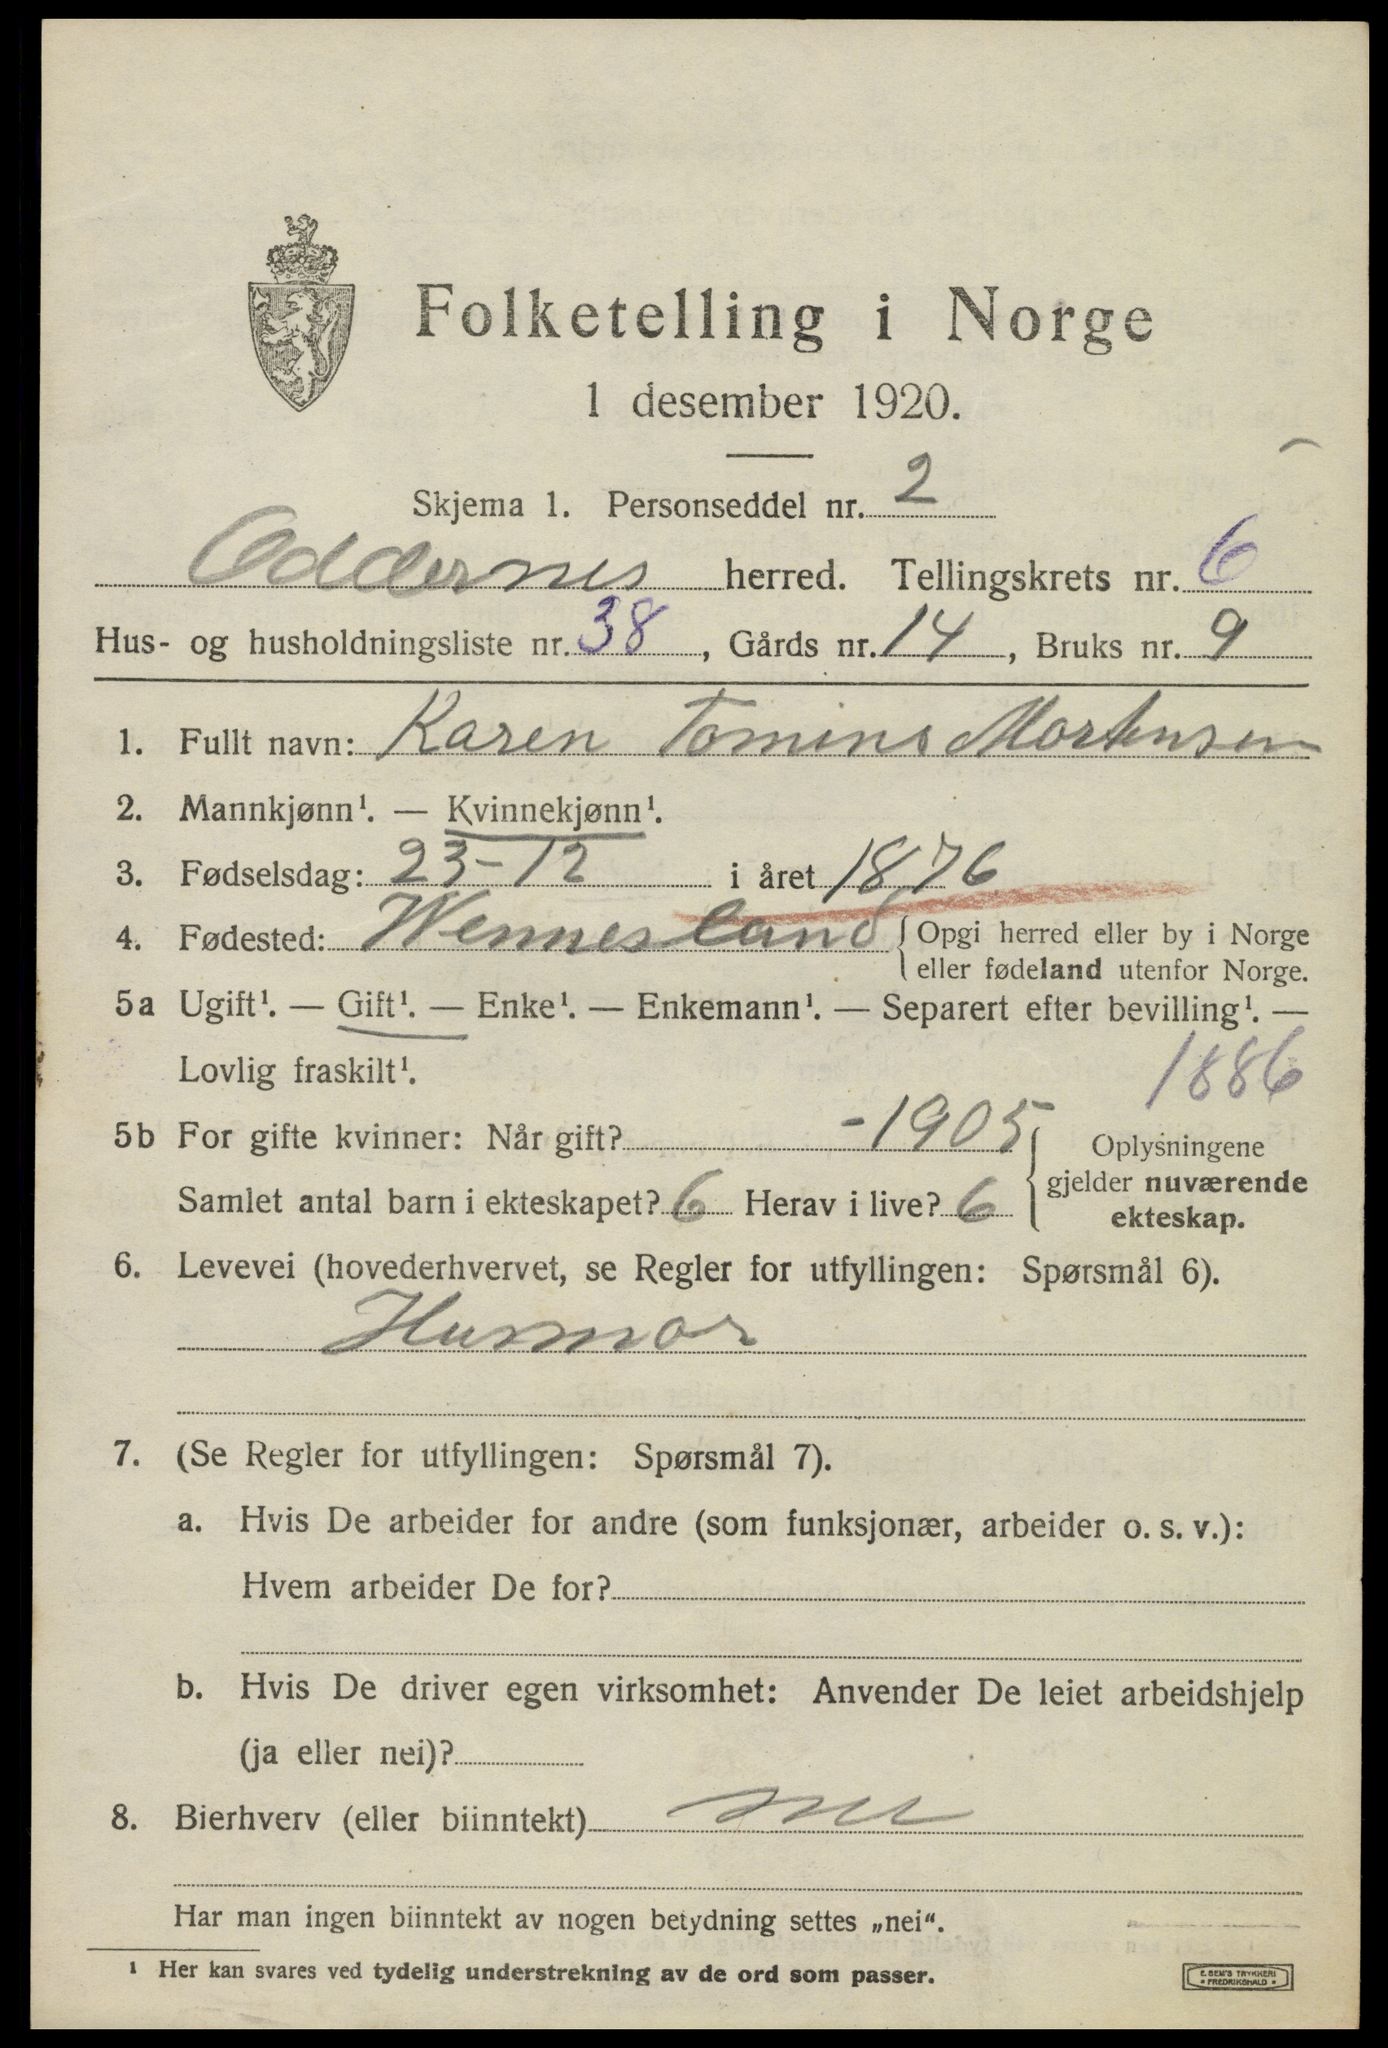 Folketelling i Norge
1 desember 1920.
Skjema 1. Personseddel nr. 2
Oddernes herred. Tellingskrets nr. 6
Hus- og husholdningsliste nr. 38, Gårds nr. 14, Bruks nr. 9
1. Fullt navn: Karen Tomine Mortensen
2. Mannkjønn¹. — Kvinnekjønn¹.
3. Fødselsdag: 23-12 i året 1876
4. Fødested: Wennesland {Opgi herred eller by i Norge
eller fødeland utenfor Norge.
5a Ugift¹. — Gift¹. — Enke¹. — Enkemann¹. — Separert efter bevilling¹. —
Lovlig fraskilt¹.
1886
5b For gifte kvinner: Når gift? -1905
Samlet antal barn i ekteskapet? 6 Herav i live? 6
Oplysningene
gjelder nuværende
ekteskap.
6. Levevei (hovederhvervet, se Regler for utfyllingen: Spørsmål 6).
Husmor
7. (Se Regler for utfyllingen: Spørsmål 7).
a. Hvis De arbeider for andre (som funksjonær, arbeider o. s. v.):
Hvem arbeider De for?
b. Hvis De driver egen virksomhet: Anvender De leiet arbeidshjelp
(ja eller nei)?
8. Bierhverv (eller biinntekt) nei
Har man ingen biinntekt av nogen betydning settes „nei“.
¹ Her kan svares ved tydelig understrekning av de ord som passer.
E. SEM'S TRYKKERI
* FREDRIKSHALD *